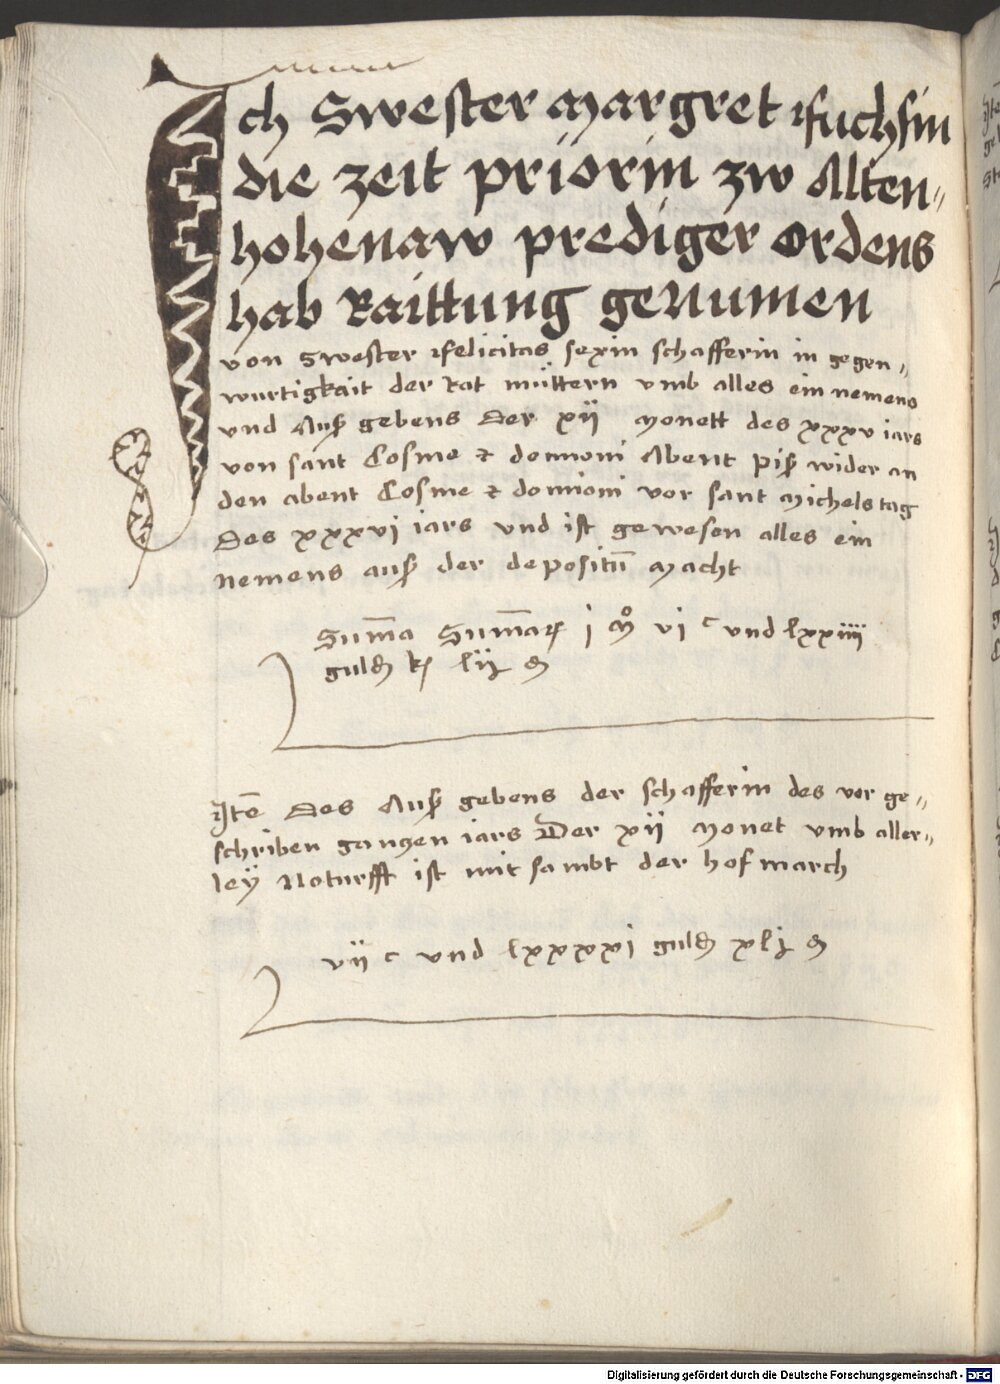 Ich Swester Margret Fuchsin
die zeit priorin zw Alten-
hohenaw prediger ordens
hab Raittung genumen
von Swester Felicitas sexin schafferin in gegen-
wurtigkait der Rat müttern vmb alles ein nemens
vnd Auß gebens Der xij Monett des xxxv iars
von sant Cosme & domioni Abent piß wider an
den abent Cosme & domioni vor sant Michelstag
Des xxxvj iars vnd ist gewesen alles ein
nemens auß der depositū Macht
Sum̄a Sum̄aꝝ j Mᵒ vi ᶜ vnd lxxiiij
guldн̄ lij ₰
Itē Des Auß gebens der schafferin des vor ge-
schriben ganczen iars Der xij Monet vmb aller-
leÿ Noturfft ist mit sambt der hofmarch
vij ᶜ vnd lxxxxi guldn̄ xlj ₰
Digitalisierung gefördert durch die Deutsche Forschungsgemeinschaft - DFG